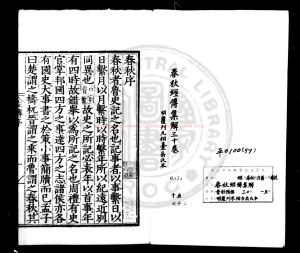 春秋序
春秋者魯史記之名也記事者以事繫日以
日繫月以月繫時以時繫年所以紀遠近別
同異也故史之所記必表年以首事年
有四時故錯舉以為所記之名也周禮有史
官掌邦國四方之事達四方之志諸侯亦各
有國史大事書之於策小事簡牘而已孟子
曰楚謂之檮杌晉謂之乘而魯謂之春秋其
春秋經傳集解三十卷
春秋經傳集解